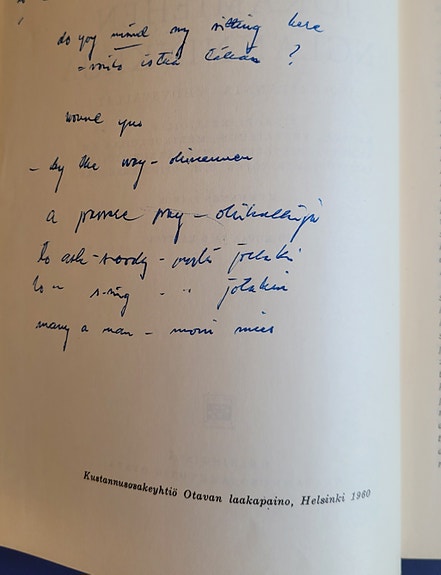 do you mind my sitting here
= voinko istua tähän ?
would you
- by the way -
a passer by - ohikulkija
to ask s-body - jotakin
to " s-thing - " jotakin
many a man - moni mies
Kustannusosakeyhtiö Otavan laakapaino, Helsinki 1960